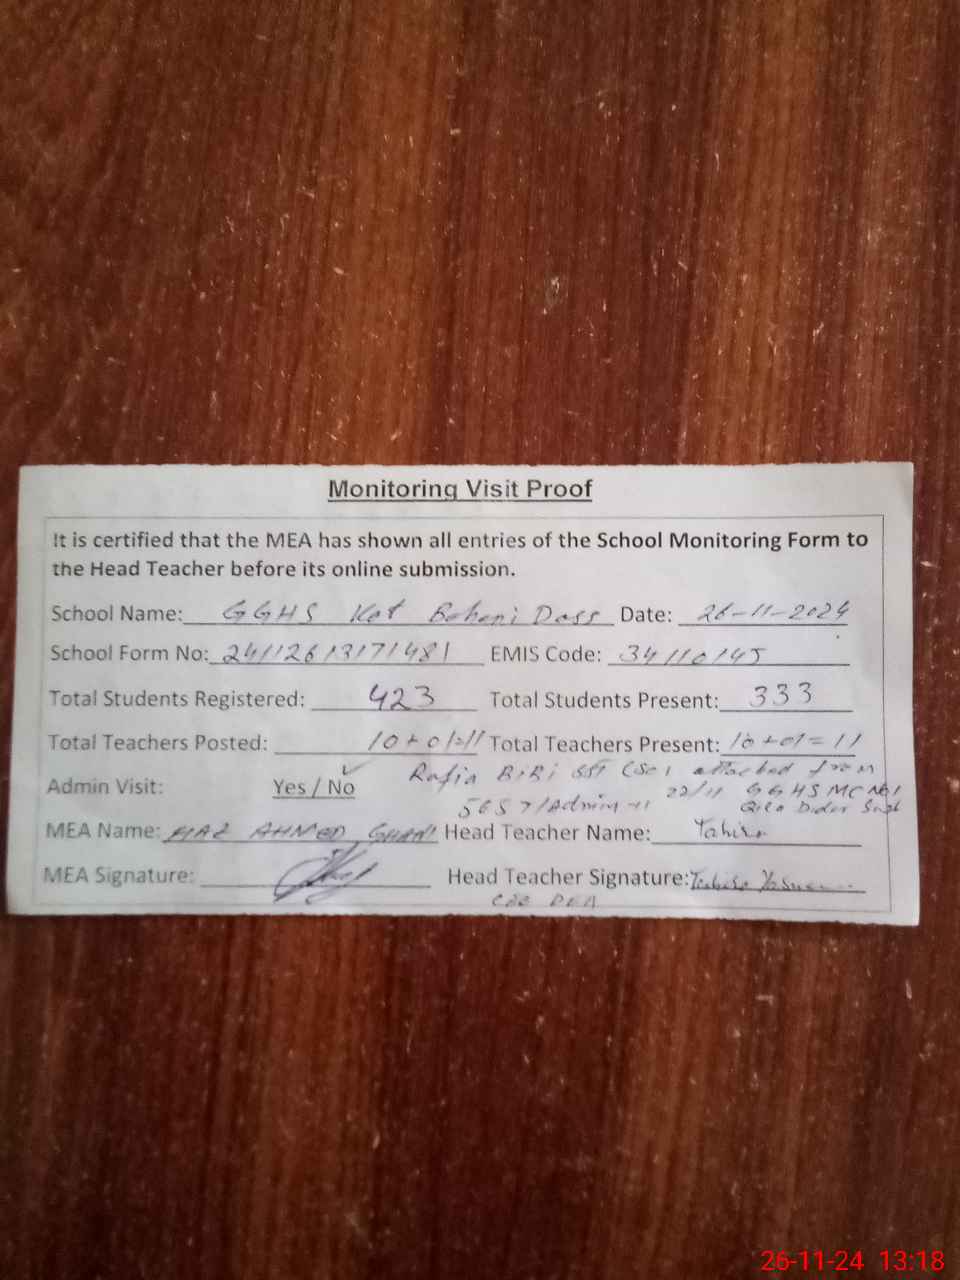 Monitoring Visit Proof
It is certified that the MEA has shown all entries of the School Monitoring Form to
the Head Teacher before its online submission.
School Name: GGHS Kot Bohani Dass Date: 26-11-2024
School Form No: 24112613171481 EMIS Code: 34110145
Total Students Registered: 423 Total Students Present: 333
Total Teachers Posted: 10+01=11 Total Teachers Present: 10+01=11
Admin Visit: Yes / No ✓ Rafia BiBi SST (Sc) attached from
5657/Admin-11 22/11 GGHS MC No1
Qila Didar Singh
MEA Name: AHMED GHANI Head Teacher Name: Tahira
MEA Signature: Head Teacher Signature: Tahira
DEA
26-11-24 13:18